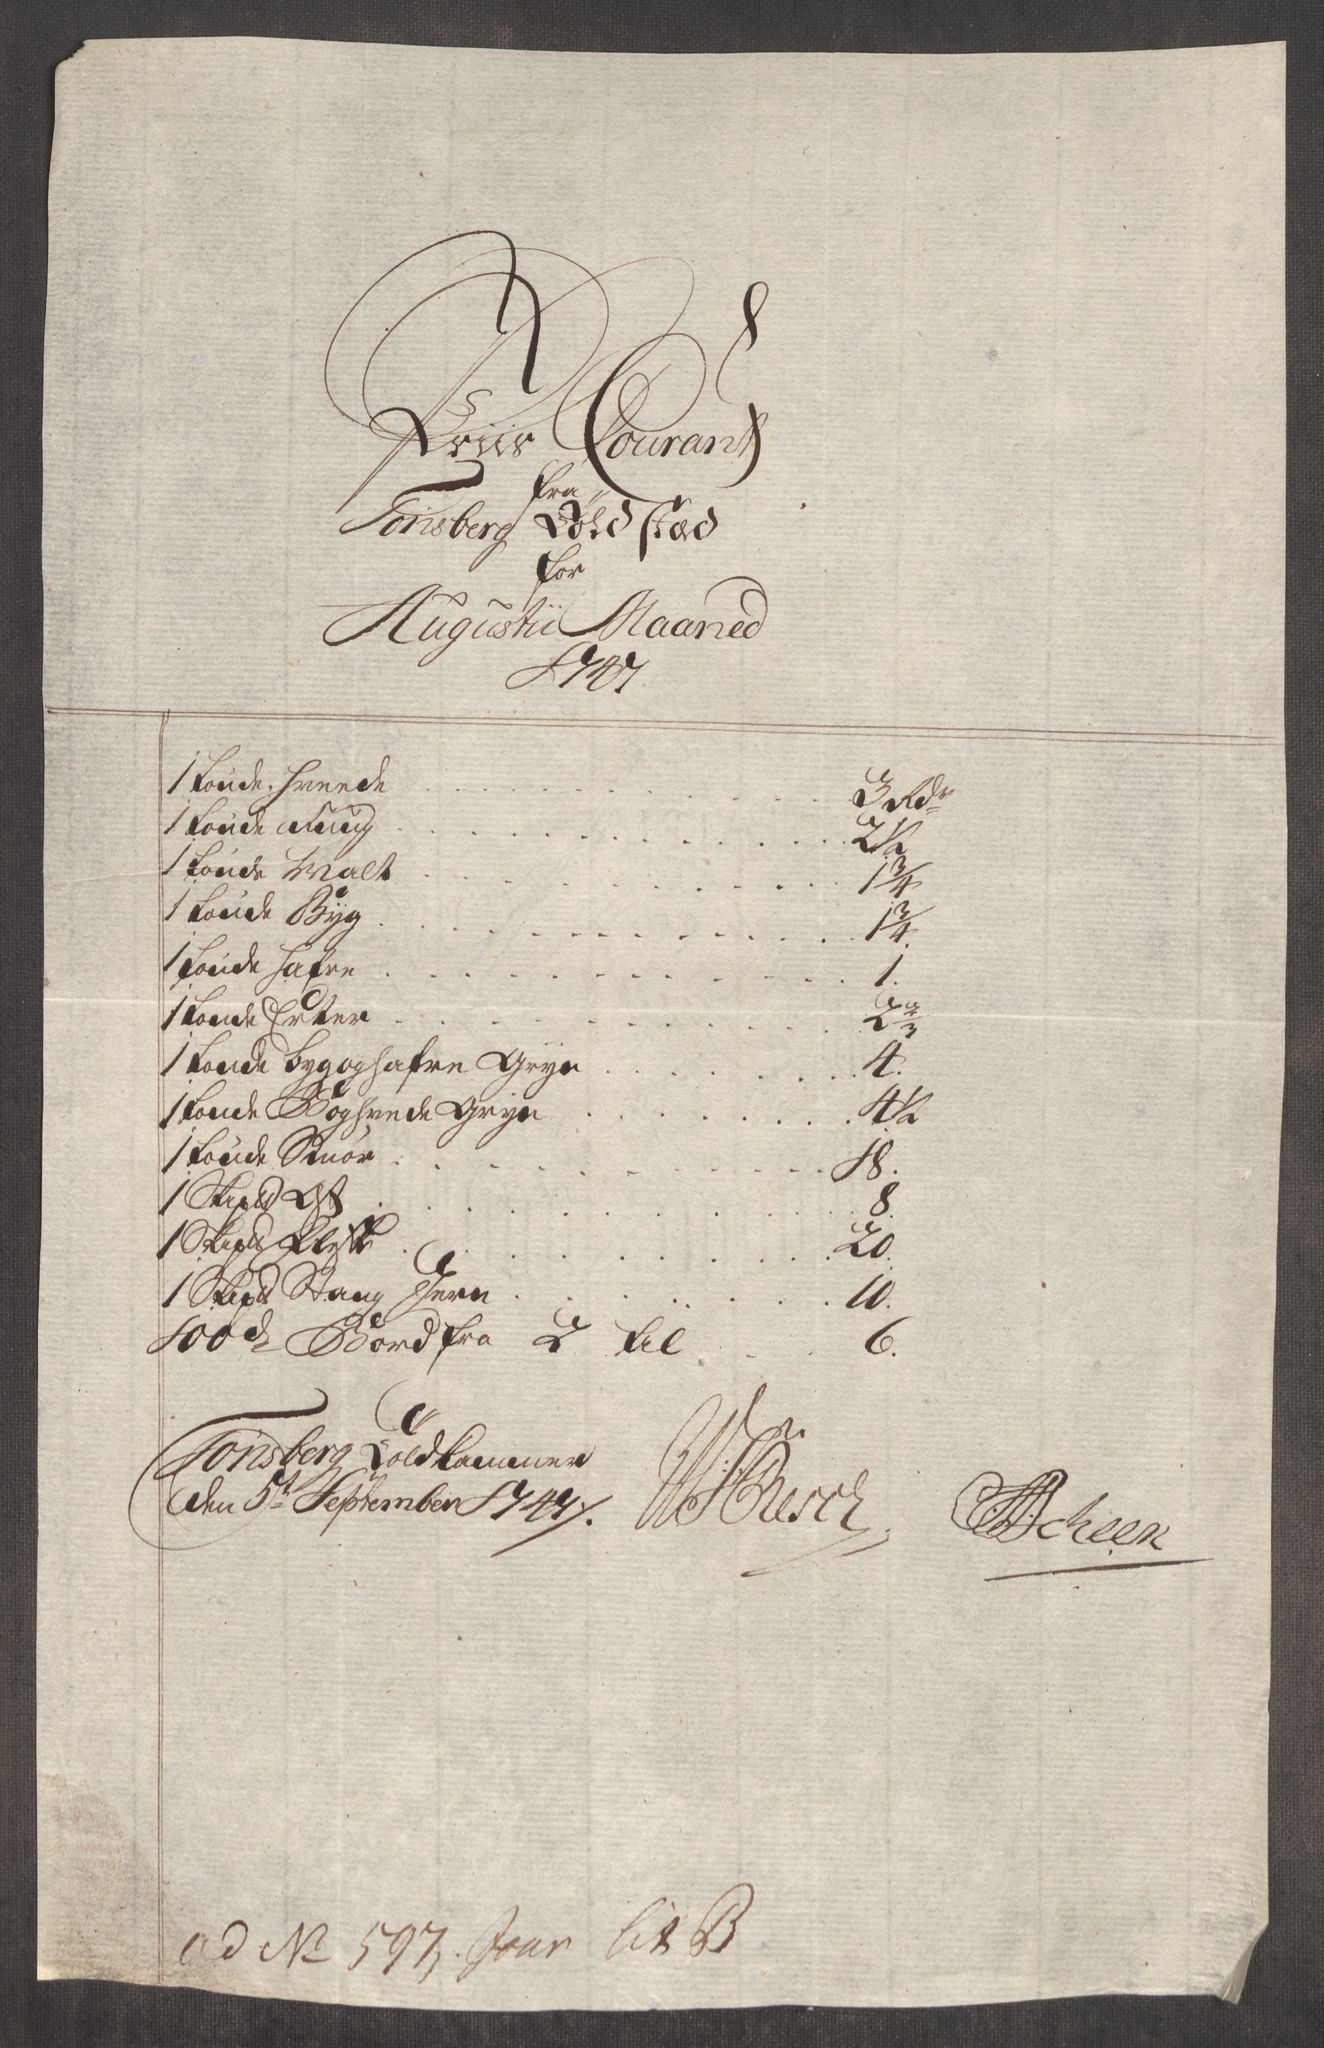 Priis Courant
fra
Tønsberg Told stæd
for
Augustii Maaned
1747
1 tønde hveede . . . 3 Rdr
1 tønde Rug . . . 2 1/2
1 tønde Malt . . . 1 3/4
1 tønde Byg . . . 1 3/4
1 tønde hafre . . . 1.
1 tønde Erter . . . 2 2/3
1 tønde byg og hafre Gryn . . . 4.
1 tønde Boghvede Gryn . . . 4 1/2
1 tønde Smør . . . 18.
1 Skipd Ost . . . 8.
1 Skipd Flesk . . . 20.
1 Skipd Stang Jern . . . 10.
100de Bord fra 2 til . . . 6.
Tønsberg Toldkammer
den 5t September 1747.
Resch Scheen
ad No 597, lit B